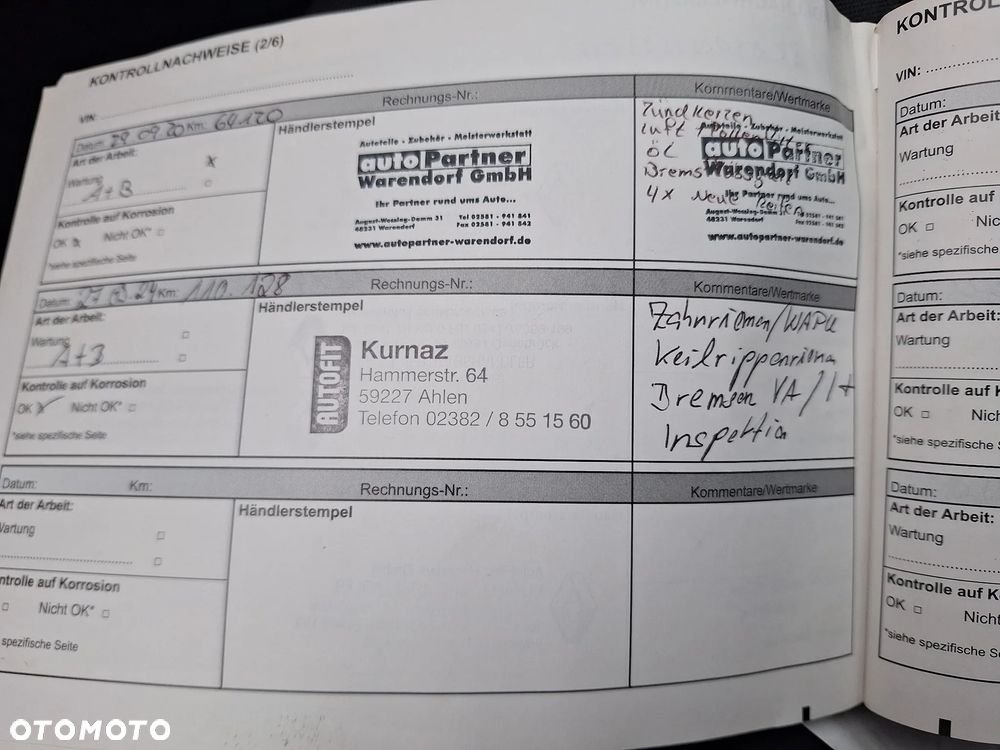 KONTROLLNACHWEISE (2/6)
VIN:
Datum: 29.09.20 Km: 64120
Rechnungs-Nr.:
Kommentare/Wertmarke
Art der Arbeit:
Wartung
A+B
Kontrolle auf Korrosion
OK Nicht OK*
*siehe spezifische Seite
Händlerstempel
Autoteile - Zubehör - Meisterwerkstatt
auto Partner
Warendorf GmbH
Ihr Partner rund ums Auto...
August-Wessing-Damm 31 Tel 02581 - 941 841
48231 Warendorf Fax 02581 - 941 842
www.autopartner-warendorf.de
Zündkerzen
Luft Pollenfilter
ÖL
Bremsflüssigkeit
4x Neue Reifen
Autoteile - Zubehör - Meisterwerkstatt
auto Partner
Warendorf GmbH
Ihr Partner rund ums Auto...
August-Wessing-Damm 31
48231 Warendorf
www.autopartner-warendorf.de
Datum: 27 24 Km: 110.128
Rechnungs-Nr.:
Kommentare/Wertmarke
Art der Arbeit:
Wartung
A+B
Kontrolle auf Korrosion
OK Nicht OK*
*siehe spezifische Seite
Händlerstempel
AUTOFIT
Kurnaz
Hammerstr. 64
59227 Ahlen
Telefon 02382 / 8 55 15 60
Zahnriemen/WAPU
Keilrippenriemen
Bremsen VA/
Inspektion
Datum: Km:
Rechnungs-Nr.:
Kommentare/Wertmarke
Art der Arbeit:
Wartung
ntrolle auf Korrosion
Nicht OK*
spezifische Seite
Händlerstempel
KONTROL
VIN:
Datum:
Art der Arbeit:
Wartung
Kontrolle auf
OK Nich
*siehe spezifische
Datum:
Art der Arbeit:
Wartung
Kontrolle auf K
OK Nich
*siehe spezifische
Datum:
Art der Arbeit:
Wartung
Kontrolle auf K
OK Nich
*siehe spezifische S
OTOMOTO